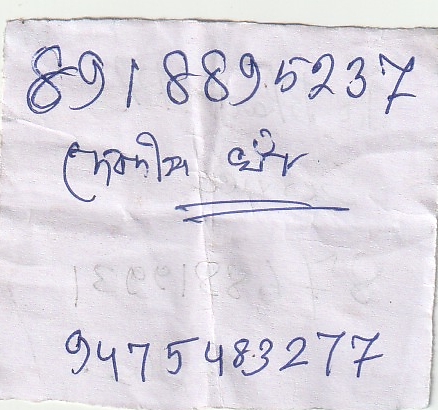 8918895237
দেবদীপ খাঁ
9475483277